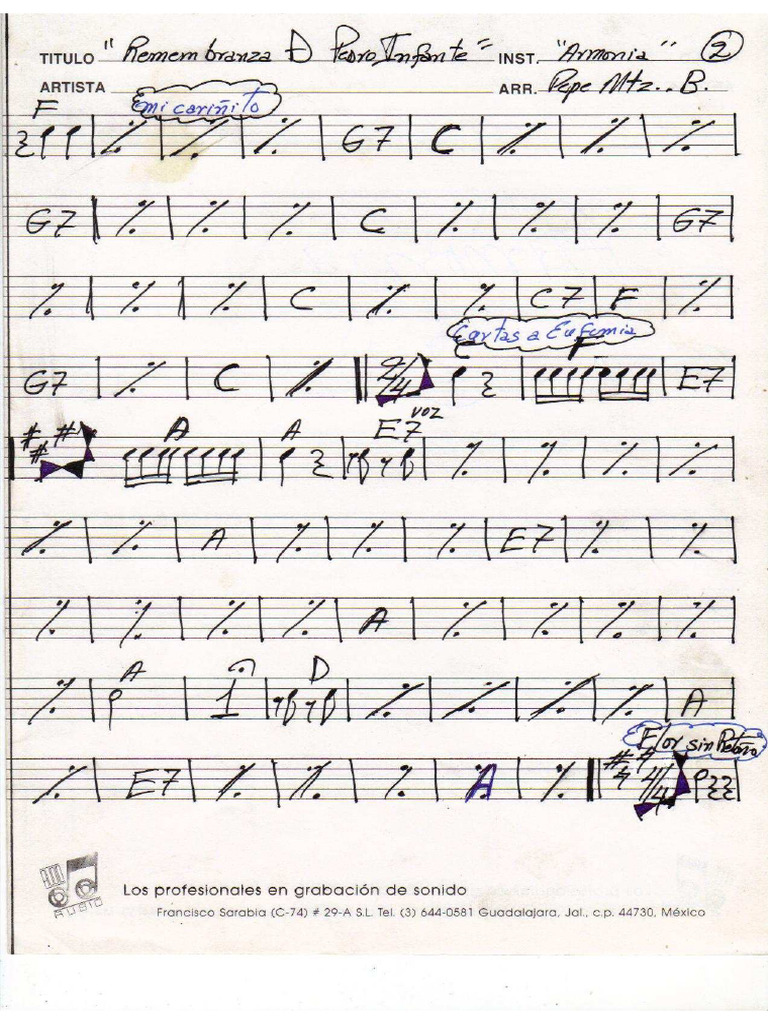 TITULO "Remembranza Đ Pedro Infante" INST. "Armonia" 2
ARTISTA ARR. Pepe Mtz.. B.
mi cariñito
F
G7 C
G7 C G7
C C7 F
Cartas a Eufemia
F
G7 C 2/4 E7
voz
A A E7
A E7
A
A 1 D A
Flor sin Retoño
E7 A 4/4
AUDIO
Los profesionales en grabación de sonido
Francisco Sarabia (C-74) # 29-A S.L. Tel. (3) 644-0581 Guadalajara, Jal., c.p. 44730, México